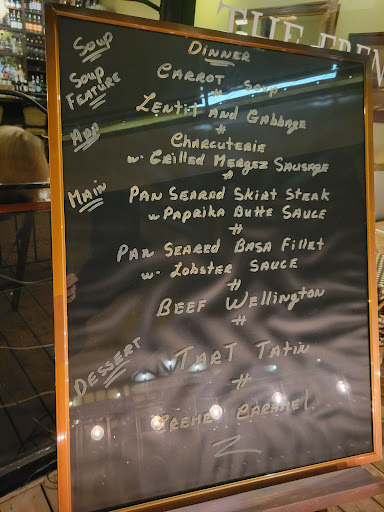 THE FREN
DINNER
Soup
CARROT Soup
#
Soup FEATURE
LENTIL AND CABBAGE
#
App
CHARCUTERIE
w. GRILLED MERGEZ SAUSAGE
#
MAIN
PAN SEARED SKIRT STEAK
w PAPRIKA BUTTE SAUCE
#
PAN SEARED BASA FILLET
w- LOBSTER SAUCE
#
BEEF WELLINGTON
#
DESSERT
TART TATIN
#
CREME CARAMEL